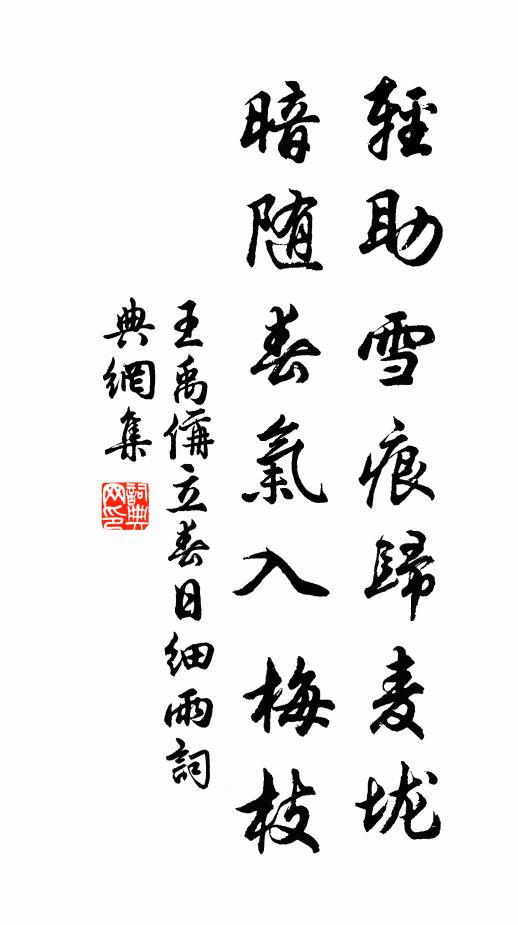 輕助雪痕歸麦垅
暗随春氣入梅枝
王禹偁立春日细雨詞
典網集
詞典网印